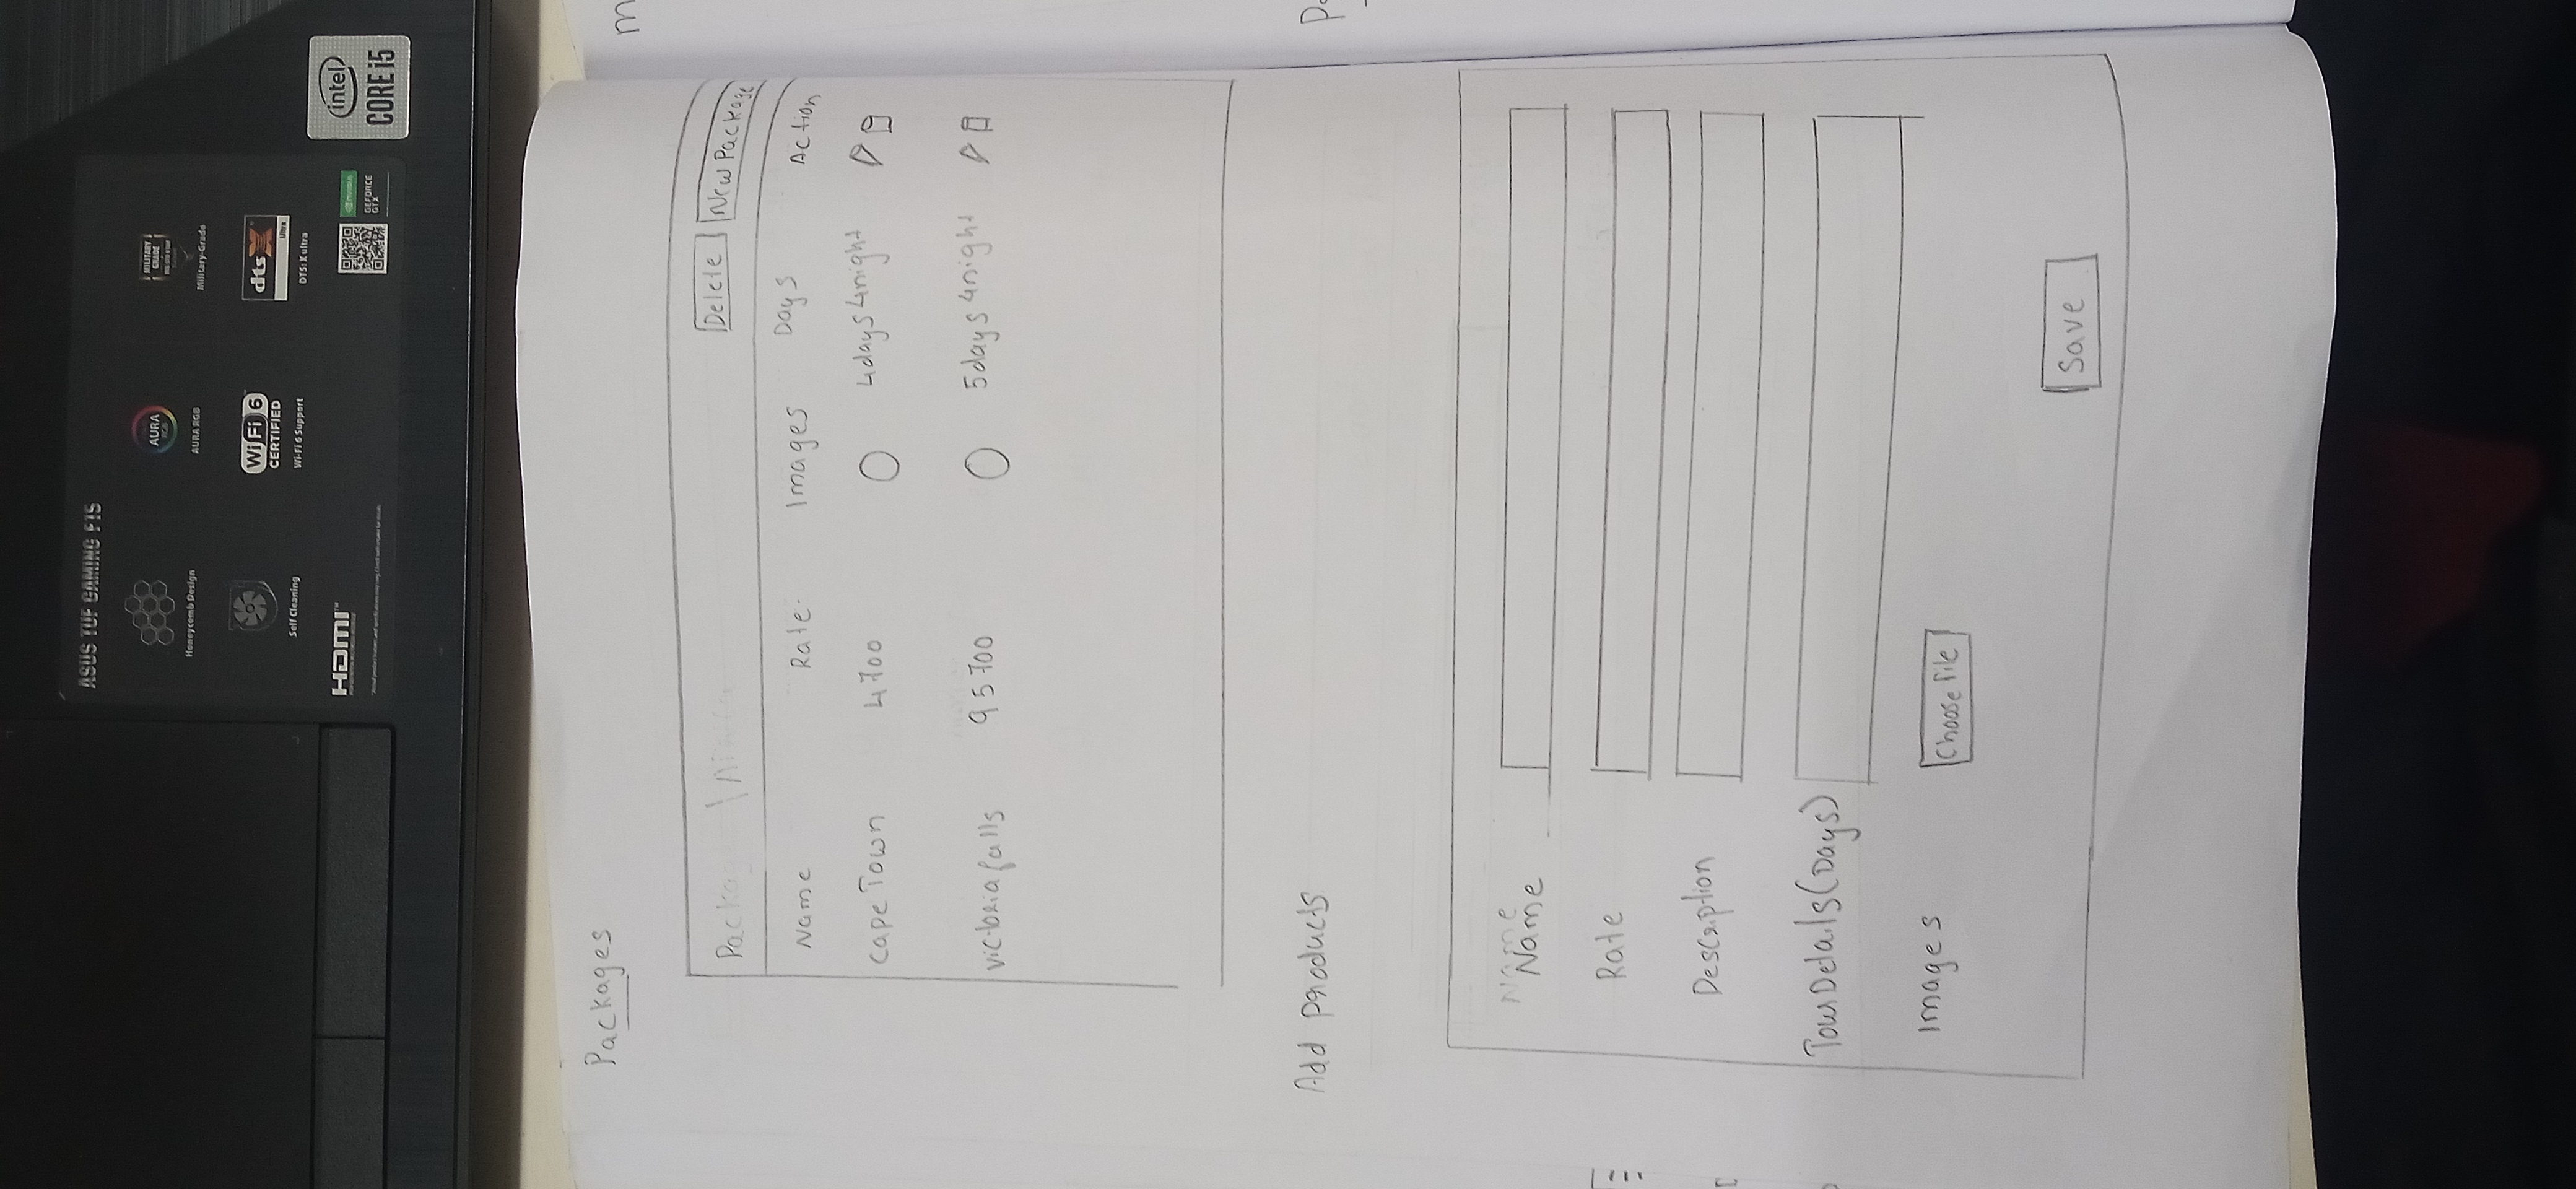 ASUS TUF GAMING F15
Honeycomb Design
AURA
AURA RGB
MILITARY GRADE
Military-Grade
Self Cleaning
Wi Fi 6
CERTIFIED
Wi-Fi 6 Support
dts X
Ultra
DTS:X ultra
HDMI™
NVIDIA
GEFORCE
GTX
intel
CORE i5
Packages
Delete New Package
Name Rate Images Days Action
Cape Town 4700 4days 4night
victoria falls 95700 5days 4night
Add products
Name
Name
Rate
Description
Tour Details (Days)
Images Choose File
Save